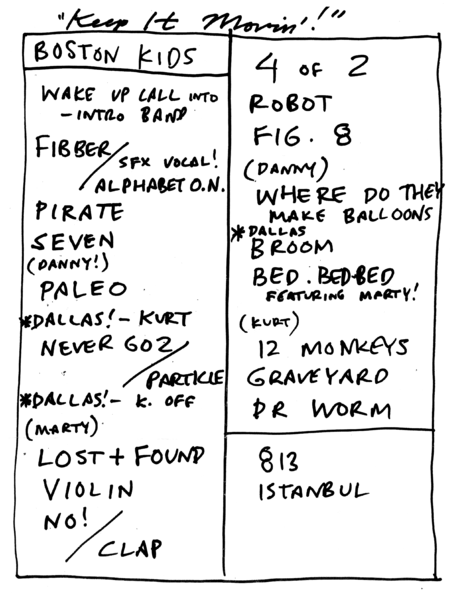 "Keep It Movin'!"
BOSTON KIDS
WAKE UP CALL INTO
- INTRO BAND
FIBBER
/ SFX VOCAL!
ALPHABET O.N.
PIRATE
SEVEN
(DANNY!)
PALEO
*DALLAS! - KURT
NEVER GO2
/ PARTICLE
*DALLAS! - K. OFF
(MARTY)
LOST + FOUND
VIOLIN
NO!
/ CLAP
4 OF 2
ROBOT
FIG. 8
(DANNY)
WHERE DO THEY
MAKE BALLOONS
*DALLAS
BROOM
BED. BED BED
FEATURING MARTY!
(KURT)
12 MONKEYS
GRAVEYARD
DR WORM
813
ISTANBUL